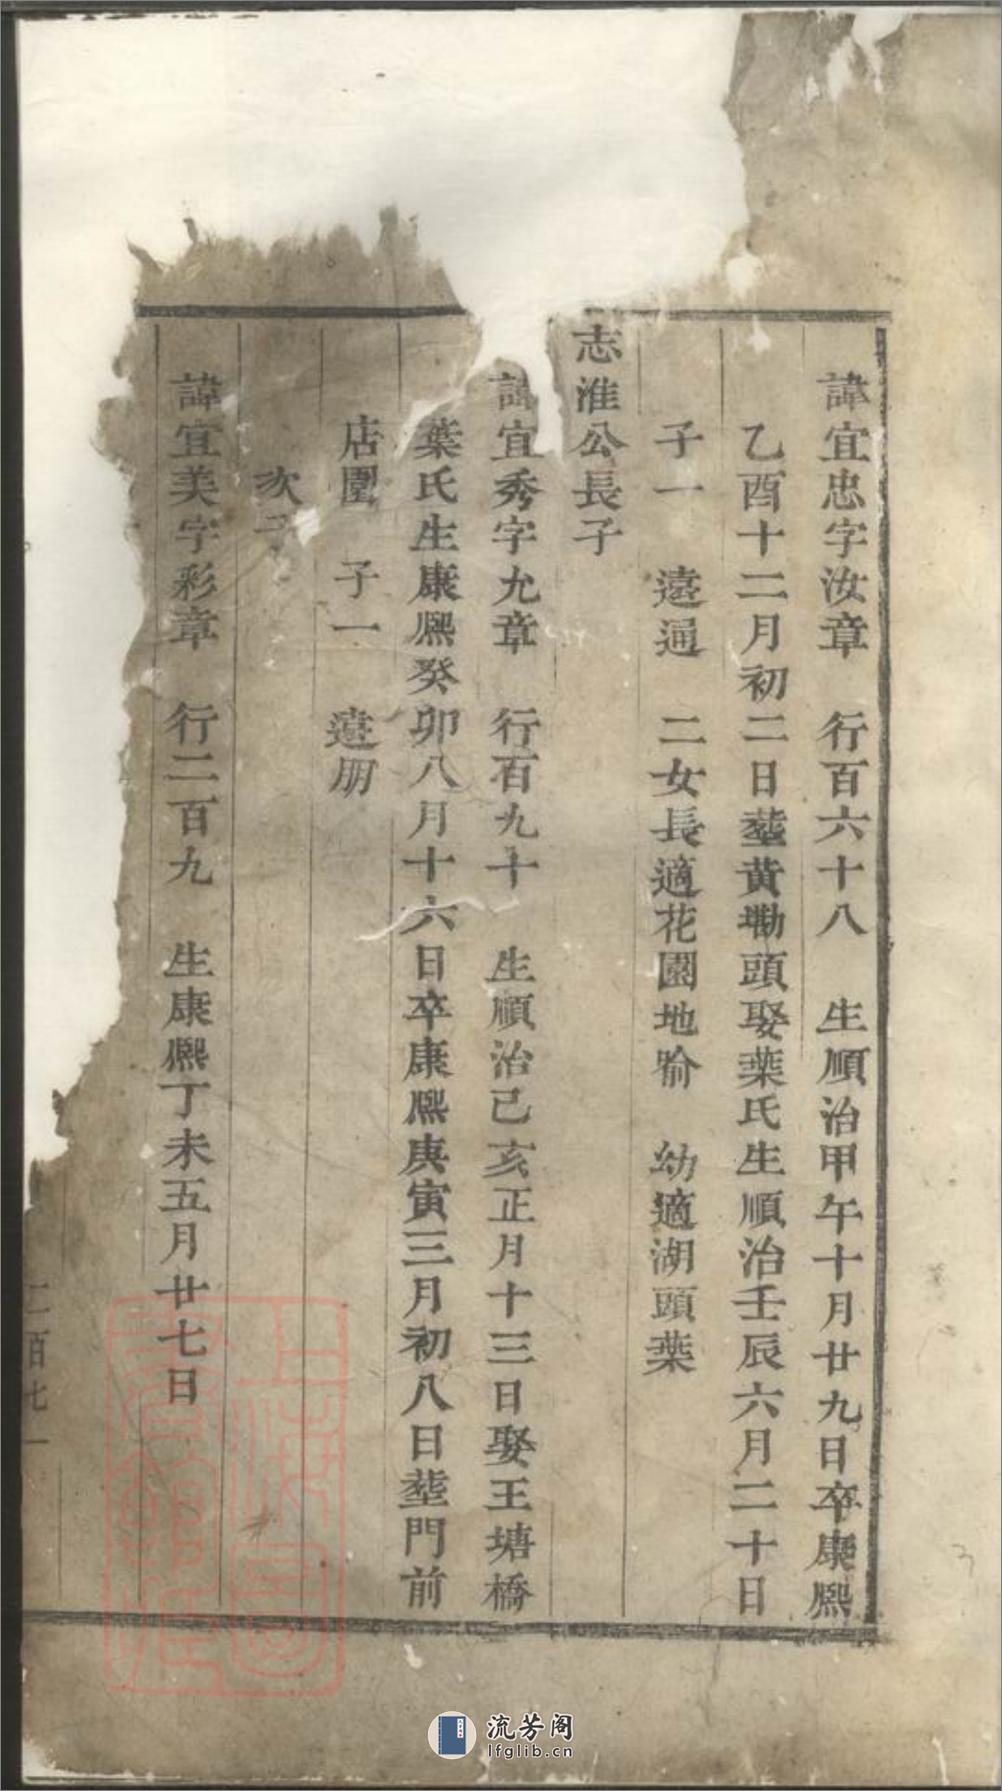 諱宜忠字汝章　行百六十八　生順治甲午十月廿九日卒康熙
乙酉十二月初二日塟黃墈頭娶葉氏生順治壬辰六月二十日
子一　遠通　二女長適花園地喻　幼適湖頭葉
志淮公長子
諱宜秀字允章　行百九十　生順治己亥正月十三日娶王塘橋
葉氏生康熙癸卯八月十六日卒康熙庚寅三月初八日塟門前
店圍　子一　遠朋
次子
諱宜美字彩章　行二百九　生康熙丁未五月廿七日
二百七一
流芳阁
lfglib.cn